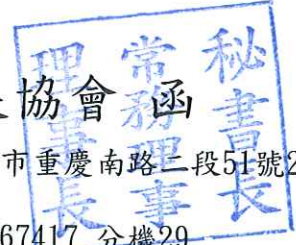 協會 函
市重慶南路二段51號2
67417 分機29
秘書長
常務理事
理事長